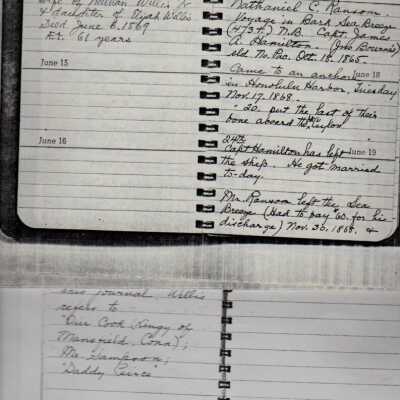 Wife of William Willis Jr
& daughter of Elijah Willis
Died June 6, 1869
Et. 61 years
June 15
June 16
Nathaniel C. Ransom.
Voyage in Bark Sea Breeze
(473 t.) N.B. Capt. James
A. Hamilton.
old M. tra. Oct. 18, 1865.
Came to an anchor June 18
in Honolulu Harbor, Tuesday
Nov. 17. 1868.
" 20. put the last of their
bone aboard the
24th
Capt Hamilton has left June 19
the ship. He got married
to-day.
Mr. Ransom left the Sea
Breeze (Had to pay 60. for his
discharge) Nov. 30. 1868. &
journal, Willis
refers to
"Our Cook Kingy of
Mansfield, Conn);
Mr. Sampson;
"Daddy Peirce"